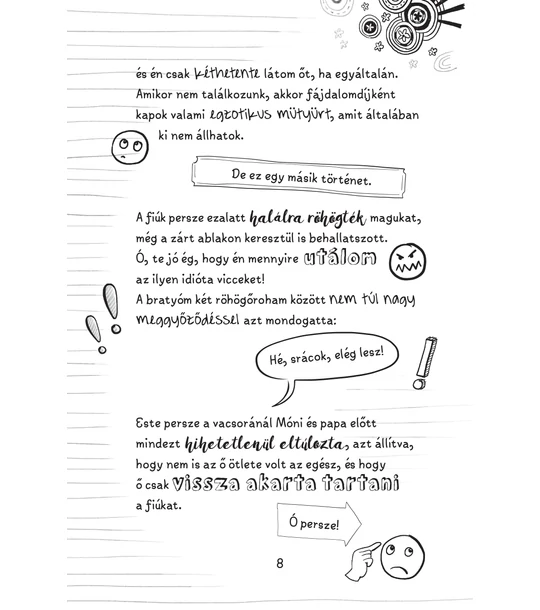 és én csak kéthetente látom őt, ha egyáltalán.
Amikor nem találkozunk, akkor fájdalomdíjként
kapok valami egzotikus mütyürt, amit általában
ki nem állhatok.
De ez egy másik történet.
A fiúk persze ezalatt halálra röhögték magukat,
még a zárt ablakon keresztül is behallatszott.
Ó, te jó ég, hogy én mennyire utálom
az ilyen idióta vicceket!
A bratyóm két röhögőroham között nem túl nagy
meggyőződéssel azt mondogatta:
Hé, srácok, elég lesz!
Este persze a vacsoránál Móni és papa előtt
mindezt hihetetlenül eltúlozta, azt állítva,
hogy nem is az ő ötlete volt az egész, és hogy
ő csak vissza akarta tartani
a fiúkat.
Ó persze!
8